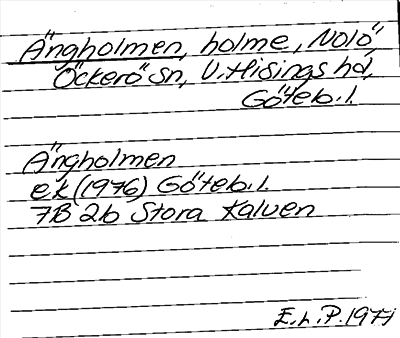 Ängholmen, holme, Nolö
Öckerö sn, V. Hisings hd,
Göteb. l.
Ängholmen
ek (1976) Göteb. l.
7B 2b Stora Kalven
E.L.P. 1977